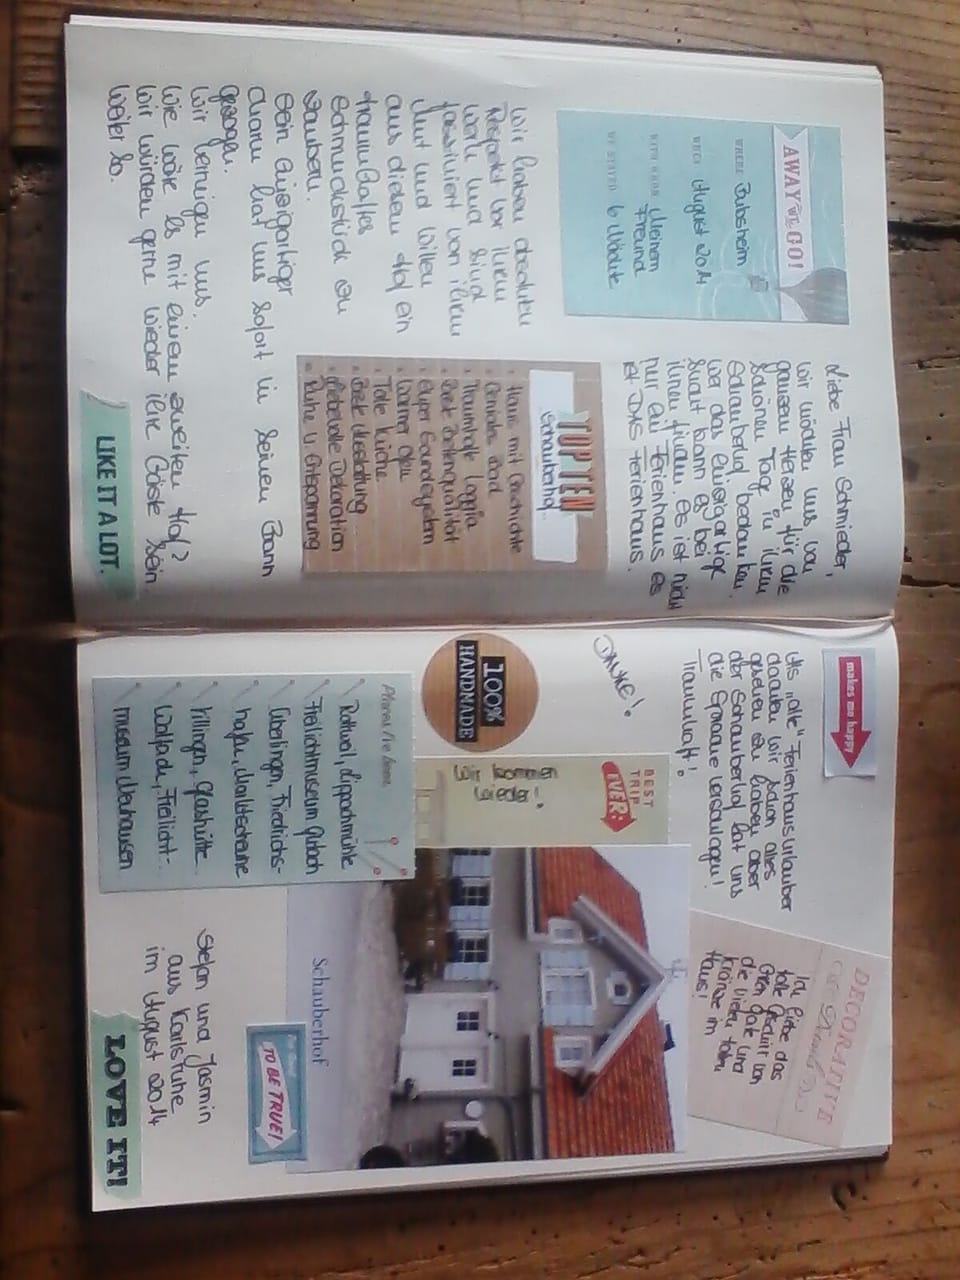 AWAY WE GO!
WHERE Bubsheim
WHEN August 2014
WITH WHOM Meinem
Freund
WE STAYED 6 Nächte
Liebe Frau Schmieder,
wir möchten uns von
ganzem Herzen für die
schönen Tage in ihrem
Schauberhof bedanken.
Wer das einzigartige
sucht kann es bei
ihnen finden. Es ist nicht
nur ein Ferienhaus es
ist DAS Ferienhaus.
Wir haben absoluten
Respekt vor ihrem
Werk und sind
fasziniert von ihrem
Mut und Willen
aus diesem Hof ein
traumhaftes
Schmuckstück zu
zaubern.
Sein einzigartiger
Charme hat uns sofort in seinen Bann
gezogen.
Wir verneigen uns.
Wie wäre es mit einem zweiten Hof?
Wir würden gerne wieder ihre Gäste sein.
Weiter so.
TOP TEN
Schauberhof
Haus mit Geschichte
Geniales Bad
Traumhafte Loggia
Beste Bettenqualität
Super Soundsystem
Warmer Ofen
Tolle Küche
Beste Ausstattung
Liebevolle Dekoration
Ruhe u. Entspannung
LIKE IT A LOT.
makes me happy
Als "alte" Ferienhausurlauber
dachten wir schon alles
gesehen zu haben aber
der Schauberhof hat uns
die Sprache verschlagen!
Traumhaft!
DANKE!
DECORATIVE
Ich liebe das
tolle Geschirr von
Green Gate und
die vielen tollen
Kränze im
Haus!
BEST
TRIP
EVER:
Wir kommen
wieder!
100%
HANDMADE
Places I've been
Rottweil, Lippachmühle
Freilichtmuseum Gutach
Überlingen, Friedrichs-
hafen,
Villingen, Glashütte
Wolfach, Freilicht-
museum Neuhausen
Schauberhof
TO BE TRUE!
Stefan und Jasmin
aus Karlsruhe
im August 2014
LOVE IT!